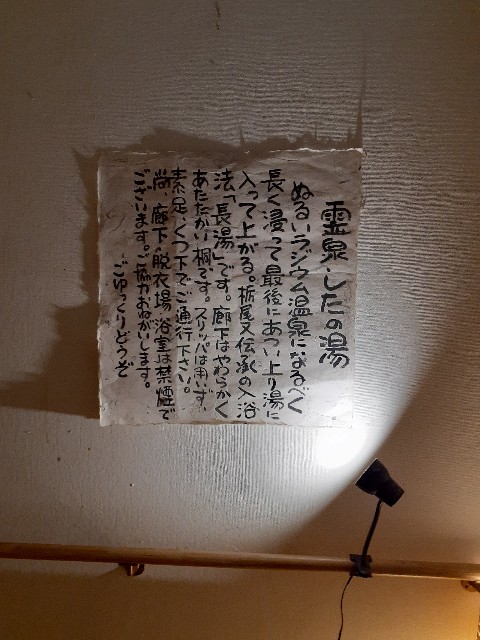 霊泉・したの湯
ぬるいラジウム温泉になるべく
長く浸って最後にあつい上り湯に
入って上がる。栃尾又伝承の入浴
法「長湯」です。廊下はやわらかく
あたたかい桐です。スリッパは用いず、
素足、くつ下でご通行下さい。
尚、廊下・脱衣場・浴室は禁煙で
ございます。ご協力おねがいします。
ごゆっくりどうぞ